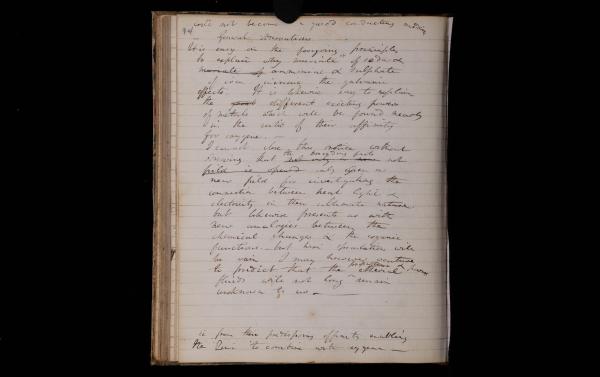 could not become a good conducting medium
94
— General observations —
It is easy on the foregoing principles
to explain why muriate of soda &
muriate of ammonia & sulphate
of iron increase the galvanic
effects. It is likewise easy to explain
the different exciting powers
of metals which will be found nearly
in the ratio of their affinity
for oxygene. —
I cannot close this notice without
observing that the foregoing facts not
only open a
new field for investigating the
connection between heat light &
electricity in their ultimate nature
but likewise presents us with
new analogies between the
chemical changes & the organic
functions — but here speculation will
be vain I may however venture
to predict that the etherial
fluids will not long remain
unknown to us —
is from their predisposing affinity enabling
the Zinc to combine with oxygene —